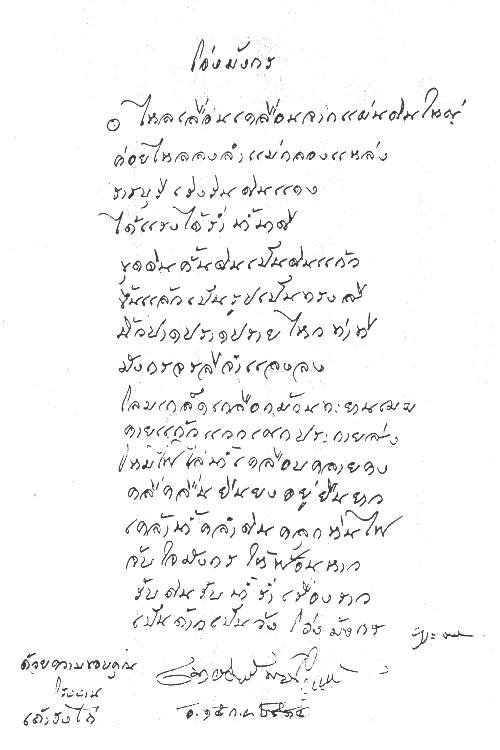 โอ่งมังกร
๏ ไหลเลื่อนเคลื่อนจากแผ่นดินใหญ่
ค่อยไหลลงลำแม่กลองแหล่ง
ราชบุรี แร่งร่นดินแดง
ได้แรงได้รำนำนาที
ขุดดินคั้นดินเป็นดินแก้ว
ขึ้นแล้วเป็นรูปเป็นทรงสี
นิ้วปาดปราดปรายไหวท่าที
มังกรจรลีลำแลงลง
โลมเกล็ดเกลือกม้วนทะยานเมฆ
คายแก้วแววเฉกประกายส่ง
ใหม้ไฟไล่น้ำเคลือบคลายคง
คลี่คลื่นยืนยงอยู่ยืนยาว
เคล้าน้ำคลำดินคลุกฟืนไฟ
จับใจมังกรให้ฟ้อนหาว
รับดินรับน้ำร่ำเรื่องราว
เป็นด้าวเป็นวัง โอ่งมังกร
ด้วยความขอบคุณ
โรงงาน
เถ้าฮงไถ่